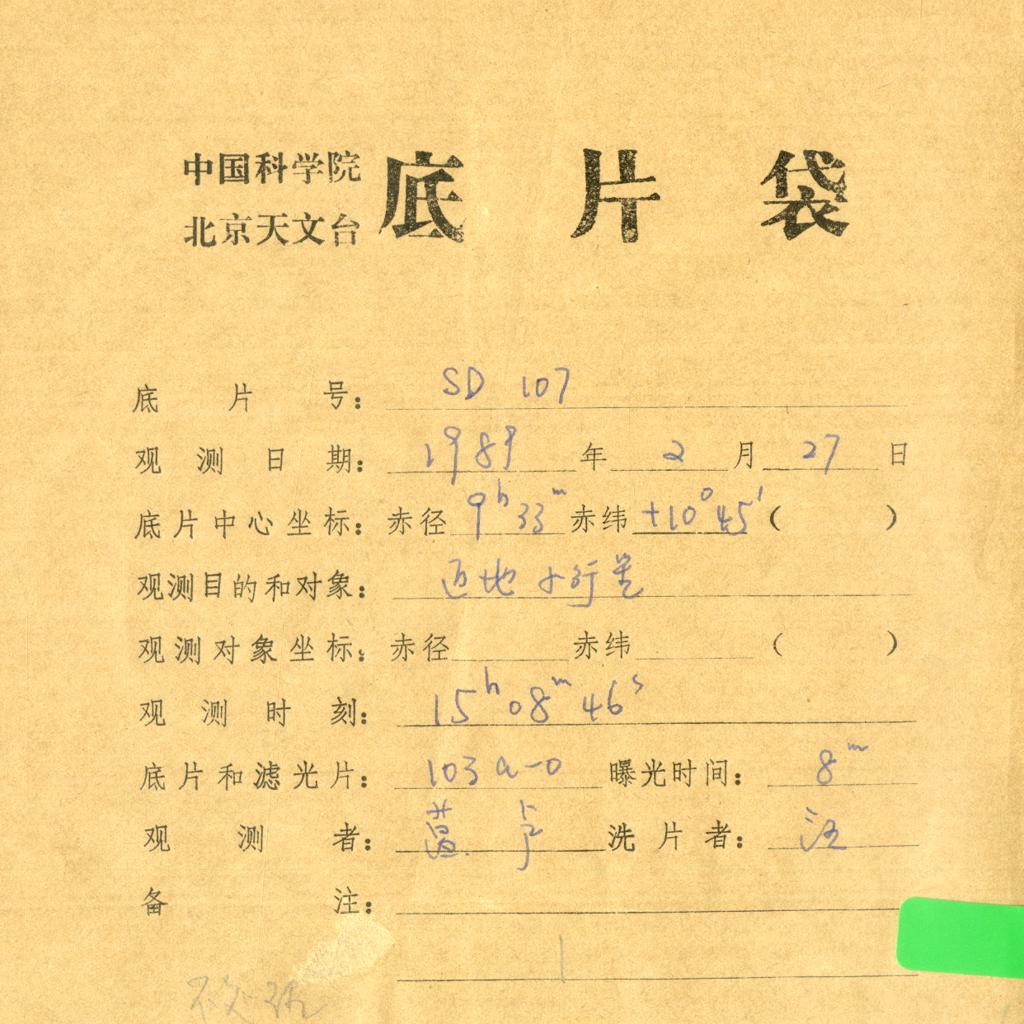 中国科学院
北京天文台
底片袋
底片号: SD 107
观测日期: 1989年2月27日
底片中心坐标: 赤径 9h 33m 赤纬 +10°45′ ( )
观测目的和对象: 近地小行星
观测对象坐标: 赤径 赤纬 ( )
观测时刻: 15h 08m 46s
底片和滤光片: 103a-O 曝光时间: 8m
观测者: 卢 洗片者: 汪
备注: